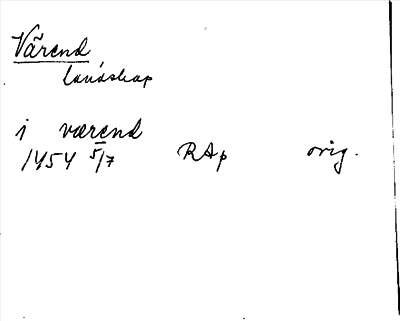 Värend
landskap
i værend
1454 5/7 RAp orig.